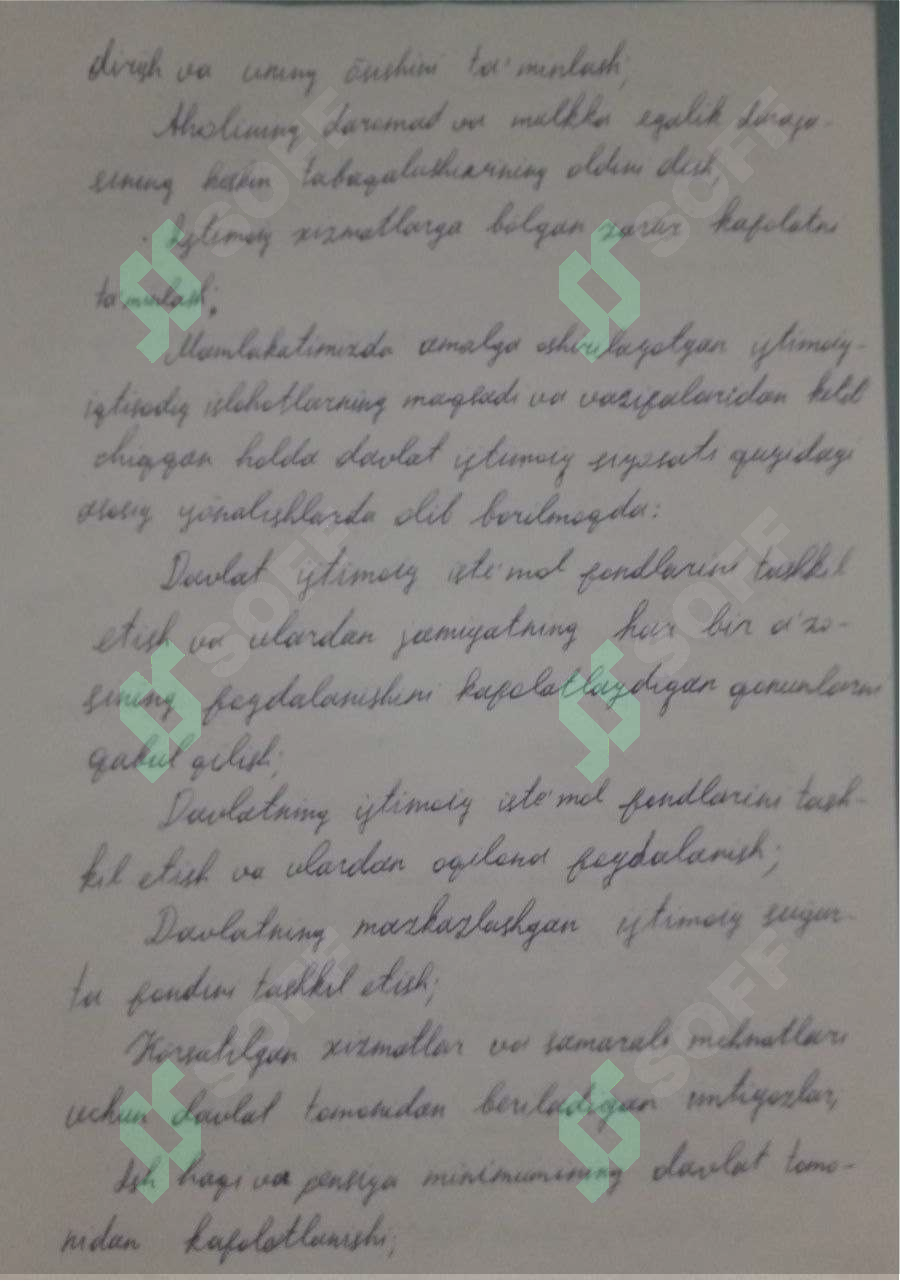 dirish va uning ōsishini ta'minlash;
Aholining daromad va mulkka egalik daraja-
sining keskin tabaqalashuvining oldini olish;
Ijtimoiy xizmatlarga bolgan zarur kafolatni
ta'minlash;
Mamlakatimizda amalga oshirilayotgan ijtimoiy-
iqtisodiy islohotlarning maqsadi va vazifalaridan kelib
chiqqan holda davlat ijtimoiy siyosati quyidagi
asosiy yōnalishlarda olib borilmoqda:
Davlat ijtimoiy iste'mol fondlarini tashkil
etish va ulardan jamiyatning har bir a'zo-
sining foydalanishini kafolatlaydigan qonunlarni
qabul qilish;
Davlatning ijtimoiy iste'mol fondlarini tash-
kil etish va ulardan oqilona foydalanish;
Davlatning mazkazlashgan ijtimoiy sugur-
ta fondini tashkil etish;
Korsatilgan xizmatlar va samarali mehnatlari
uchun davlat tomonidan beriladigan imtiyozlar;
Ish haqi va pensiya minimumining davlat tomo-
nidan kafolatlanishi;
SOFF
SOFF
SOFF
SOFF
SOFF
SOFF